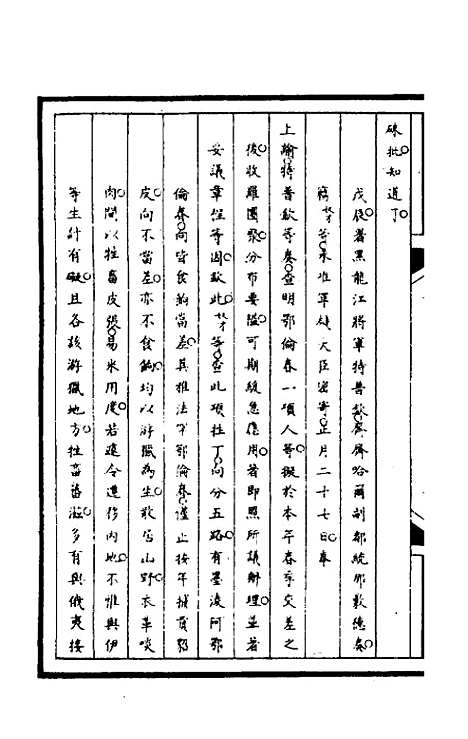 硃批知道了
戊辰署黑龍江將軍特普欽齊齊哈爾副都統那敷德奏
竊奴才等承准軍機大臣密寄正月二十七日奉
上諭特普欽等奏查明鄂倫春一項人等擬於本年春季交差之
後收雖團聚分布要隘可期緩急應用著即照所議辦理並著
妥議章程等因欽此奴才等查此項牲丁向分五路有墨淩阿鄂
倫春向皆食餉當差其雅法罕鄂倫春謹止按年捕貢貂
皮向不當差亦不食餉均以游獵為生散居山野衣革啖
肉間以牲畜皮張易米用度若遽令遷移內地不惟與伊
等生計有礙且各該游獵地方牲畜蕃滋多有與俄夷接